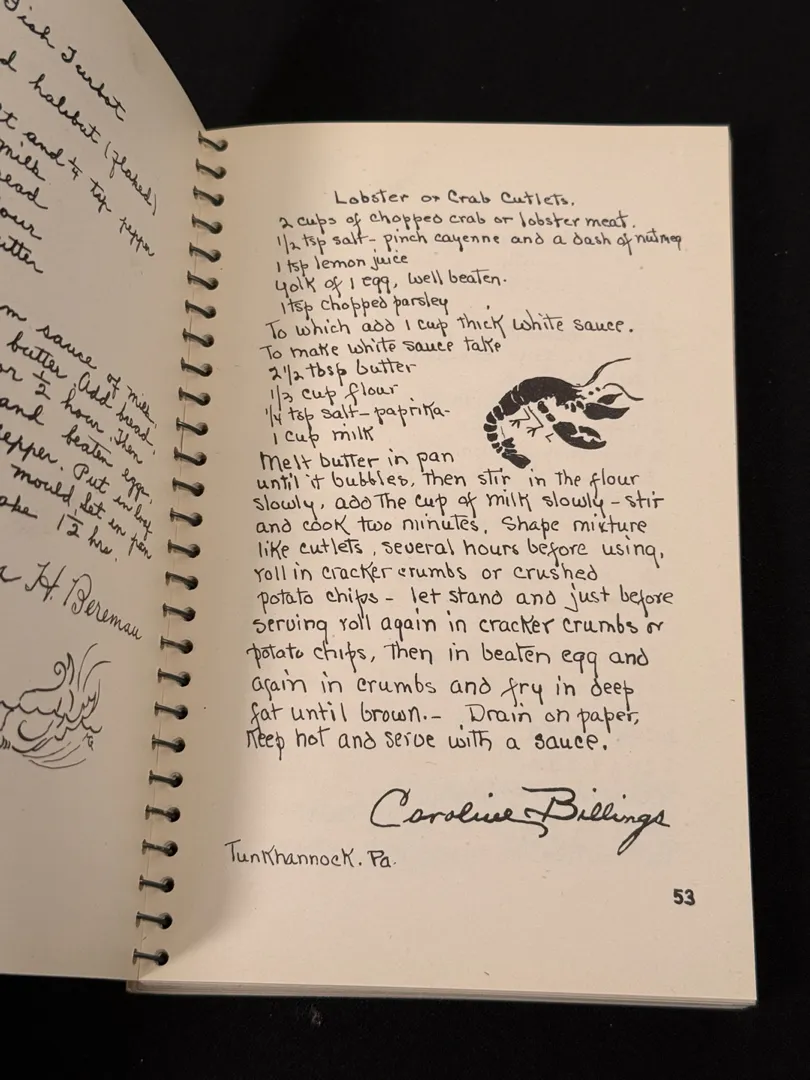 Fish Turbot
halibut (flaked)
and 1/4 tsp pepper
milk
our
utter
sauce of milk,
butter. Add bread,
or 1/2 hour. Then
and beaten egg,
epper. Put in loaf
mould, set in pan
ake 1 1/2 hrs.
H. Bereman
Lobster or Crab Cutlets.
2 cups of chopped crab or lobster meat.
1/2 tsp salt - pinch cayenne and a dash of nutmeg
1 tsp lemon juice
yolk of 1 egg, well beaten.
1 tsp chopped parsley
To which add 1 cup thick white sauce.
To make white sauce take
2 1/2 tbsp butter
1/3 cup flour
1/4 tsp salt - paprika -
1 cup milk
Melt butter in pan
until it bubbles, then stir in the flour
slowly, add the cup of milk slowly - stir
and cook two minutes. Shape mixture
like cutlets, several hours before using,
roll in cracker crumbs or crushed
potato chips - let stand and just before
serving roll again in cracker crumbs or
potato chips, then in beaten egg and
again in crumbs and fry in deep
fat until brown. - Drain on paper,
Keep hot and serve with a sauce.
Caroline Billings
Tunkhannock. Pa.
53